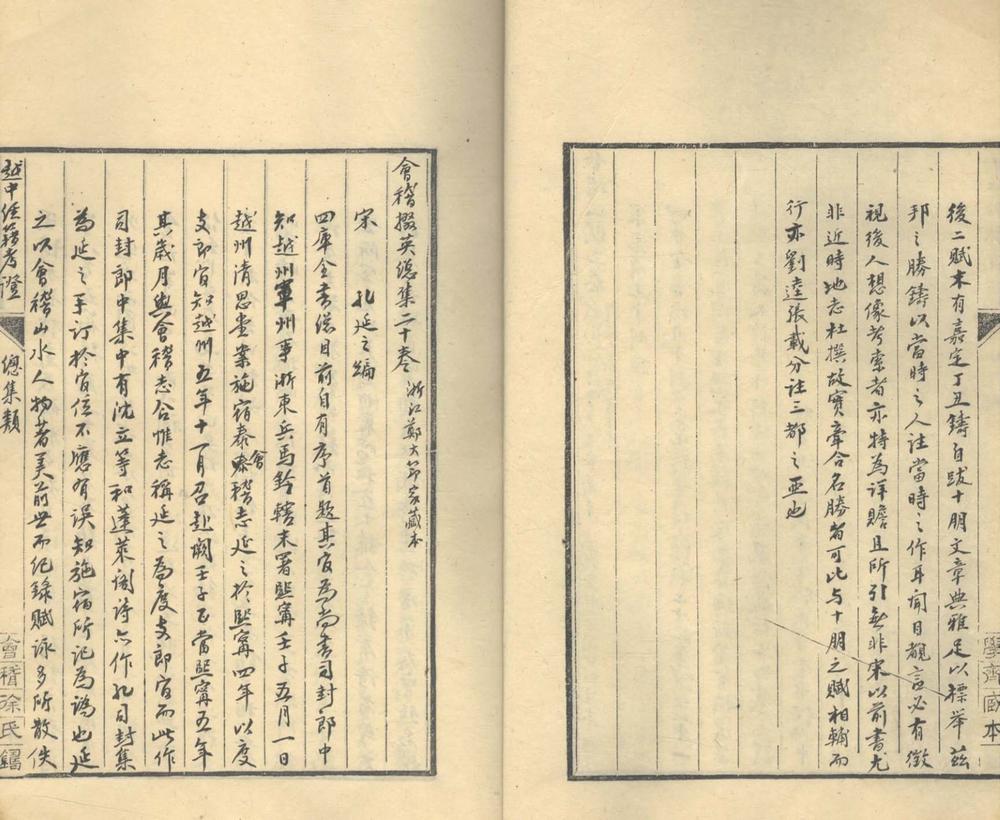 後二賦末有嘉定丁丑鑄自跋十朋文章典雅足以標舉茲
邦之勝鑄以當時之人注當時之作耳聞目覩言必有徵
視後人想像考索者亦特為詳贍且所引無非宋以前書尤
非近時地志杜撰故實牽合名勝者可比与十朋之賦相輔而
行亦劉逵張載分注三都之亞也
會稽掇英總集二十卷 浙江鄭大節家藏本
宋 孔延之編
四庫全書總目前自有序首題其官為尚書司封郎中
知越州軍州事浙東兵馬鈐轄末署熙寧壬子五月一日
越州清思堂案施宿嘉泰會稽志延之於熙寧四年以度
支郎官知越州五年十一月召赴闕壬子正當熙寧五年
其歲月與會稽志合惟志稱延之為度支郎官而此作
司封郎中集中有沈立等和蓬萊閣詩亦作孔司封集
為延之手訂於官位不應有誤知施宿所記為譌也延
之以會稽山水人物著美前世而紀錄賦詠多所散佚
越中經籍考證
總集類
會稽徐氏
學齋
本